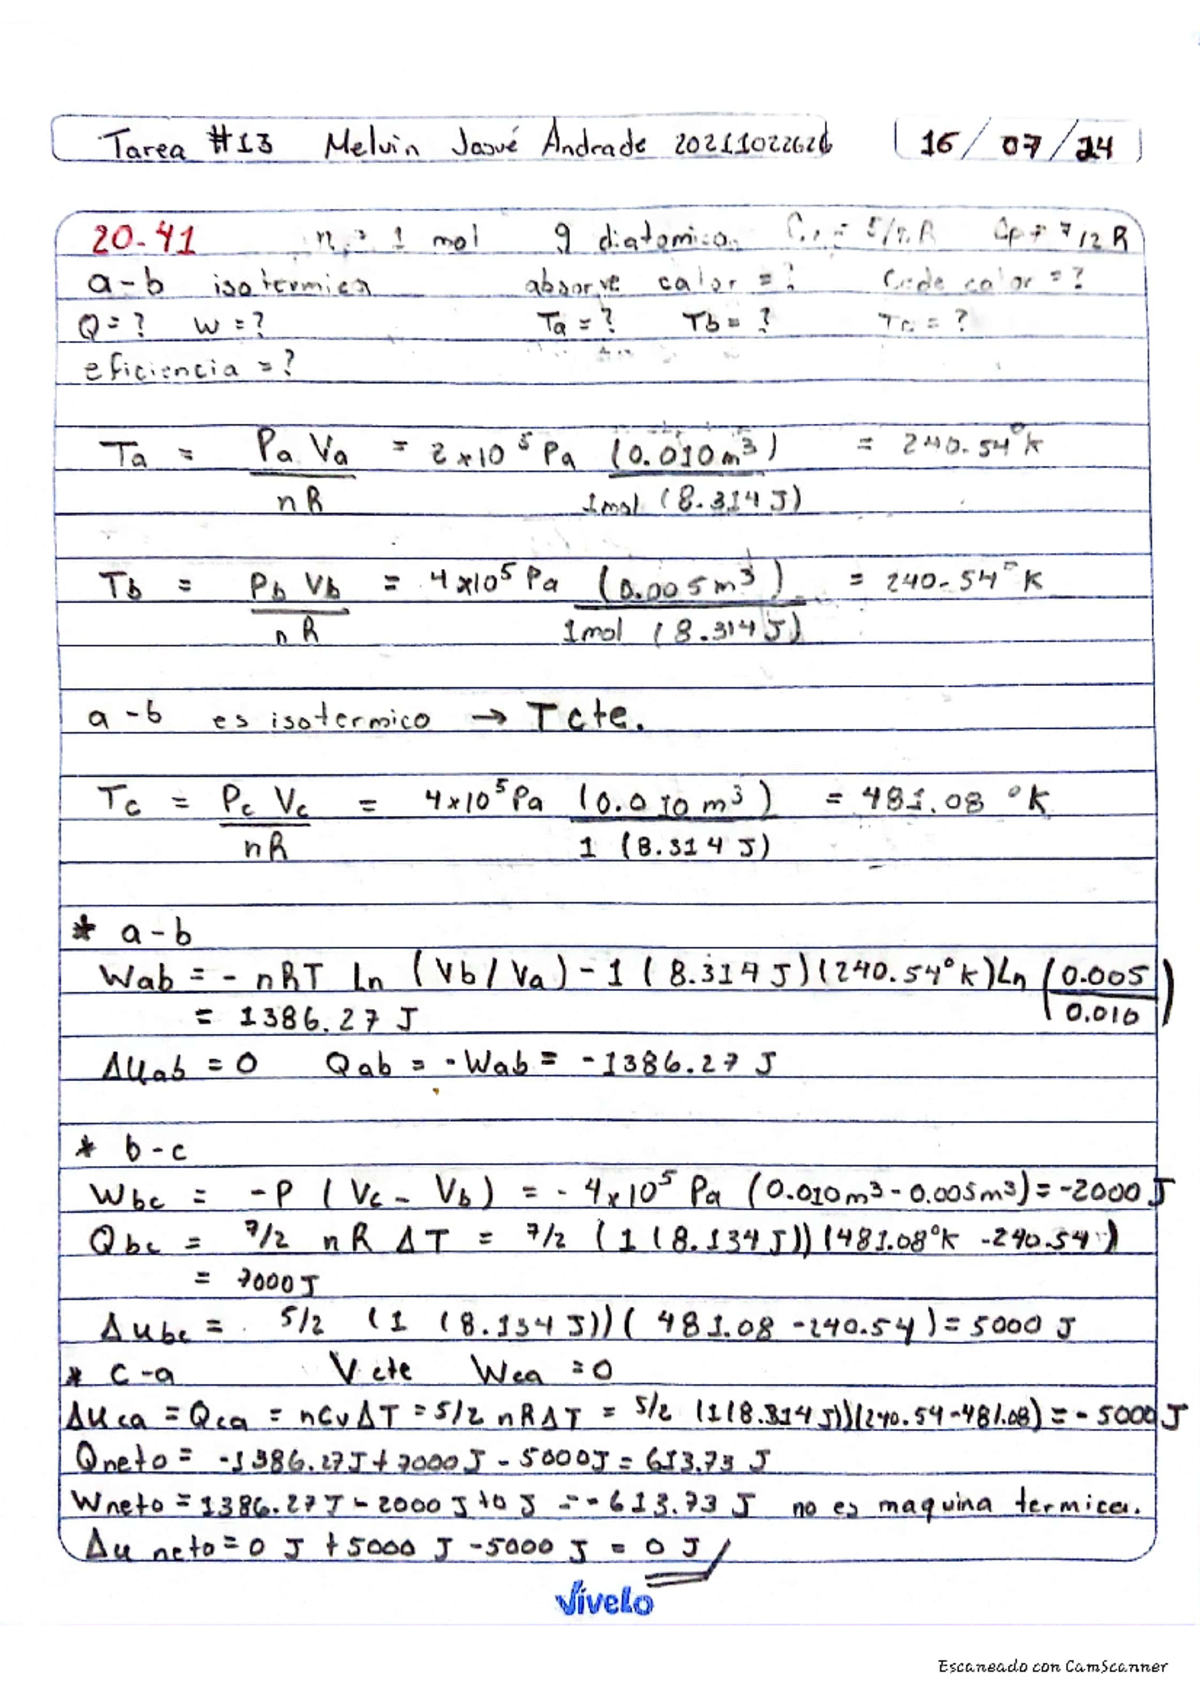 Tarea #13 Melvin Josué Andrade 20211022621 16/07/24
20-41 n = 1 mol g diatomico. Cv = 5/2 R Cp = 7/2 R
a-b isotermica absorve calor = ? Cede calor = ?
Q = ? W = ? Ta = ? Tb = ? Tc = ?
eficiencia = ?
Ta = Pa Va = 2x10⁵ Pa (0.010m³) = 240.54°K
nR 1mol (8.314 J)
Tb = Pb Vb = 4x10⁵ Pa (0.005m³) = 240.54°K
nR 1mol (8.314 J)
a-b es isotermico → T cte.
Tc = Pc Vc = 4x10⁵ Pa (0.010 m³) = 481.08 °K
nR 1 (8.314 J)
* a-b
Wab = - nRT Ln (Vb/Va) - 1 (8.314 J)(240.54°K)Ln (0.005
= 1386.27 J 0.010)
ΔUab = 0 Qab = -Wab = -1386.27 J
* b-c
Wbc = -P (Vc - Vb) = - 4x10⁵ Pa (0.010m³-0.005m³) = -2000 J
Qbc = 7/2 nRΔT = 7/2 (1(8.134J))(481.08°K -240.54)
= 7000J
Δubc = 5/2 (1 (8.134 J))( 481.08 -240.54) = 5000 J
* c-a V cte Wca = 0
ΔUca = Qca = nCvΔT = 5/2 nRΔT = 5/2 (1(8.314J))(240.54-481.08) = - 5000 J
Qneto = -1386.27J + 7000J - 5000J = 613.73 J
Wneto = 1386.27J - 2000 J + 0 J = - 613.73 J no es maquina termica.
Δu neto = 0 J + 5000 J -5000 J = 0 J
Vívelo
Escaneado con CamScanner